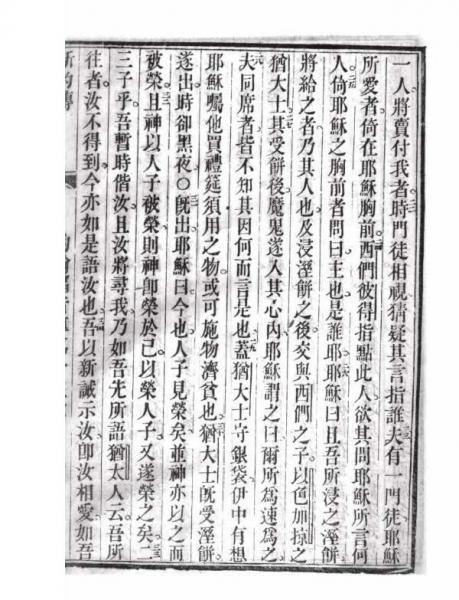 一人將賣付我者時門徒相視猜疑其言指誰夫有一門徒耶穌
所愛者倚在耶穌胸前西們彼得指點此人欲其問耶穌所言何
人倚耶穌之胸前者問曰主也是誰耶耶穌曰且吾所浸之溼餅
將給之者乃其人也及浸溼餅之後交與西們之子以色加掠之
猶大士其受餅後魔鬼遂入其心內耶穌謂之曰爾所為速為之
夫同席者皆不知其因何而言是也蓋猶大士守銀袋伊中有想
耶穌囑他買禮筵須用之物或可施物濟貧也猶大士旣受溼餅
遂出時卻黑夜〇旣出耶穌曰今也人子見榮矣並神亦以之而
被榮且神以人子被榮則神卽榮於己以榮人子又遂榮之矣二
三子乎吾暫時偕汝且汝將尋我乃如吾先所語猶太人云吾所
往者汝不得到今亦如是語汝也吾以新誡示汝卽汝相愛如吾